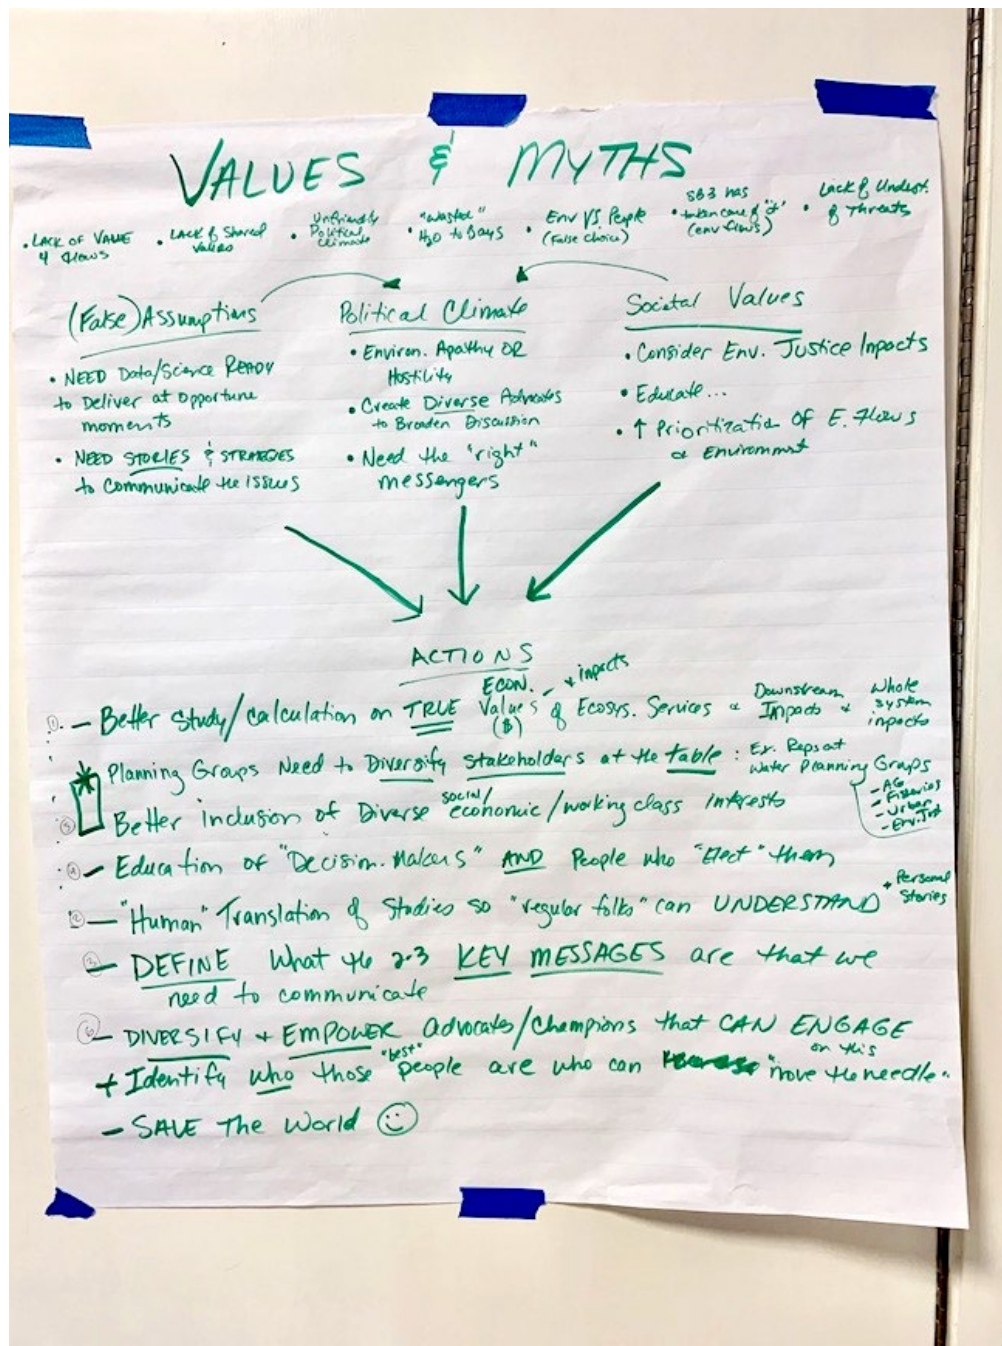 VALUES & MYTHS
• LACK OF VALUE
4 flows
• LACK of Shared
values
• Unfriendly
Political
Climate
• "Wasted"
H2O to Bays
• Env VS. People
(False choice)
• SB3 has
taken care of "it"
(env flows)
• Lack of Underst.
of Threats
(False) Assumptions
• NEED Data/Science READY
to Deliver at opportune
moments
• NEED STORIES & STRATEGIES
to Communicate the ISSUES
Political Climate
• Environ. Apathy OR
Hostility
• Create Diverse Advocates
to Broaden Discussion
• Need the "right"
messengers
Societal Values
• Consider Env. Justice Impacts
• Educate...
• ↑ Prioritization OF E. Flows
& Environment
ACTIONS
1. — Better Study/Calculation on TRUE ECON. Values ($) + impacts of Ecosys. Services & Downstream Impacts & Whole system impacts
* Planning Groups Need to Diversify Stakeholders at the table : Ex. Reps at
Water Planning Groups
- AG
- Fisheries
- Urban
- Env. Just
5 Better inclusion of Diverse social/economic/working class interests
4 — Education of "Decision-Makers" AND People who "Elect" them
2 — "Human" Translation of Studies so "regular folks" can UNDERSTAND + Personal Stories
3 — DEFINE What the 2-3 KEY MESSAGES are that we
need to communicate
6 — DIVERSIFY + EMPOWER advocates/Champions that CAN ENGAGE on this
+ Identify who those "best" people are who can "move the needle"
— SAVE The World ☺